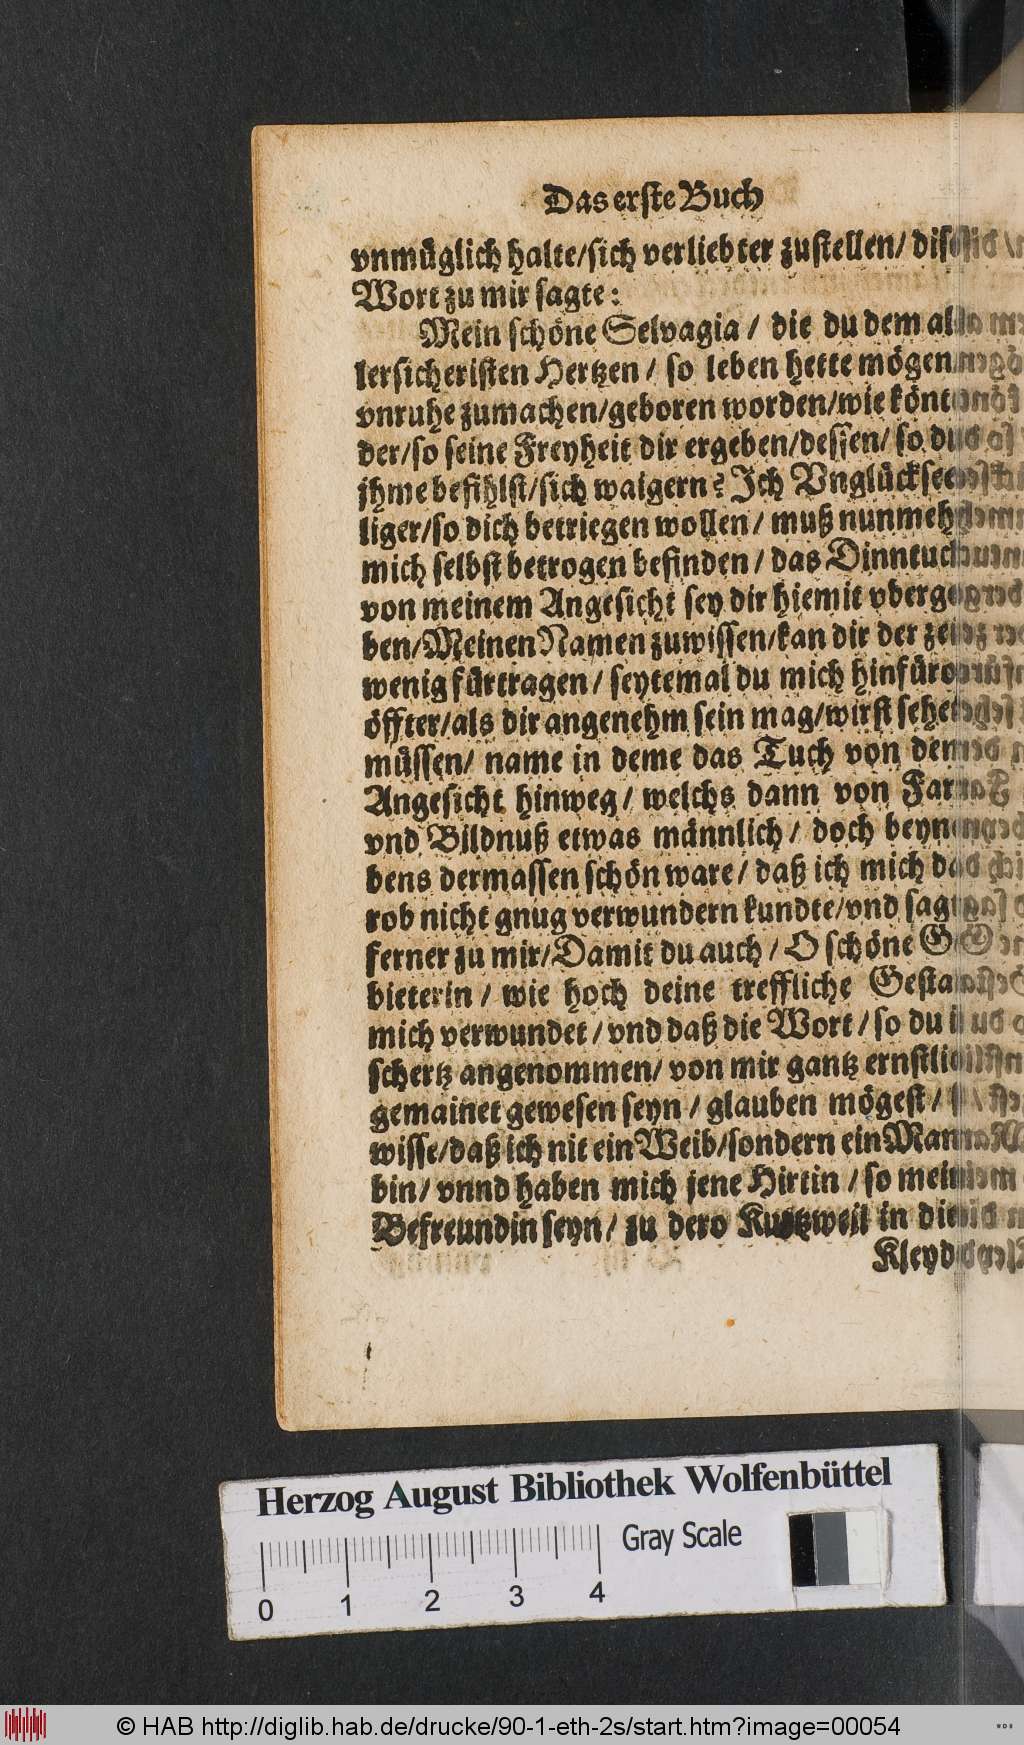 Das erste Buch
vnmüglich halte/sich verliebter zustellen/ dise
Wort zu mir sagte:
Mein schöne Selvagia / die du dem al-
lersicheristen Hertzen / so leben hette mögen
vnruhe zumachen/geboren worden/wie könt
der/so seine Freyheit dir ergeben/dessen/ so du
jhme befihlst/sich waigern? Ich Vnglücksee-
liger/so dich betriegen wollen / muß nunmeh
mich selbst betrogen befinden / das Dinntuch
von meinem Angesicht sey dir hiemit vberge-
ben/Meinen Namen zuwissen/kan dir der zeit
wenig fürtragen / seytemal du mich hinfüro
öffter/als dir angenehm sein mag/wirst sehen
müssen/ name in deme das Tuch von dem
Angesicht hinweg / welchs dann von Farb
vnd Bildnuß etwas männlich / doch beyne-
bens dermassen schön ware / daß ich mich da-
rob nicht gnug verwundern kundte/vnd sagt
ferner zu mir/Damit du auch / O schöne Ge-
bieterin / wie hoch deine treffliche Gestalt
mich verwundet / vnd daß die Wort / so du in
schertz angenommen/ von mir gantz ernstlich
gemainet gewesen seyn / glauben mögest /
wisse/daß ich nit ein Weib/sondern ein Mann
bin/ vnnd haben mich jene Hirtin / so mein
Befreundin seyn / zu dero Kurtzweil in die
Kleyd
Herzog August Bibliothek Wolfenbüttel
Gray Scale
0 1 2 3 4
© HAB http://diglib.hab.de/drucke/90-1-eth-2s/start.htm?image=00054